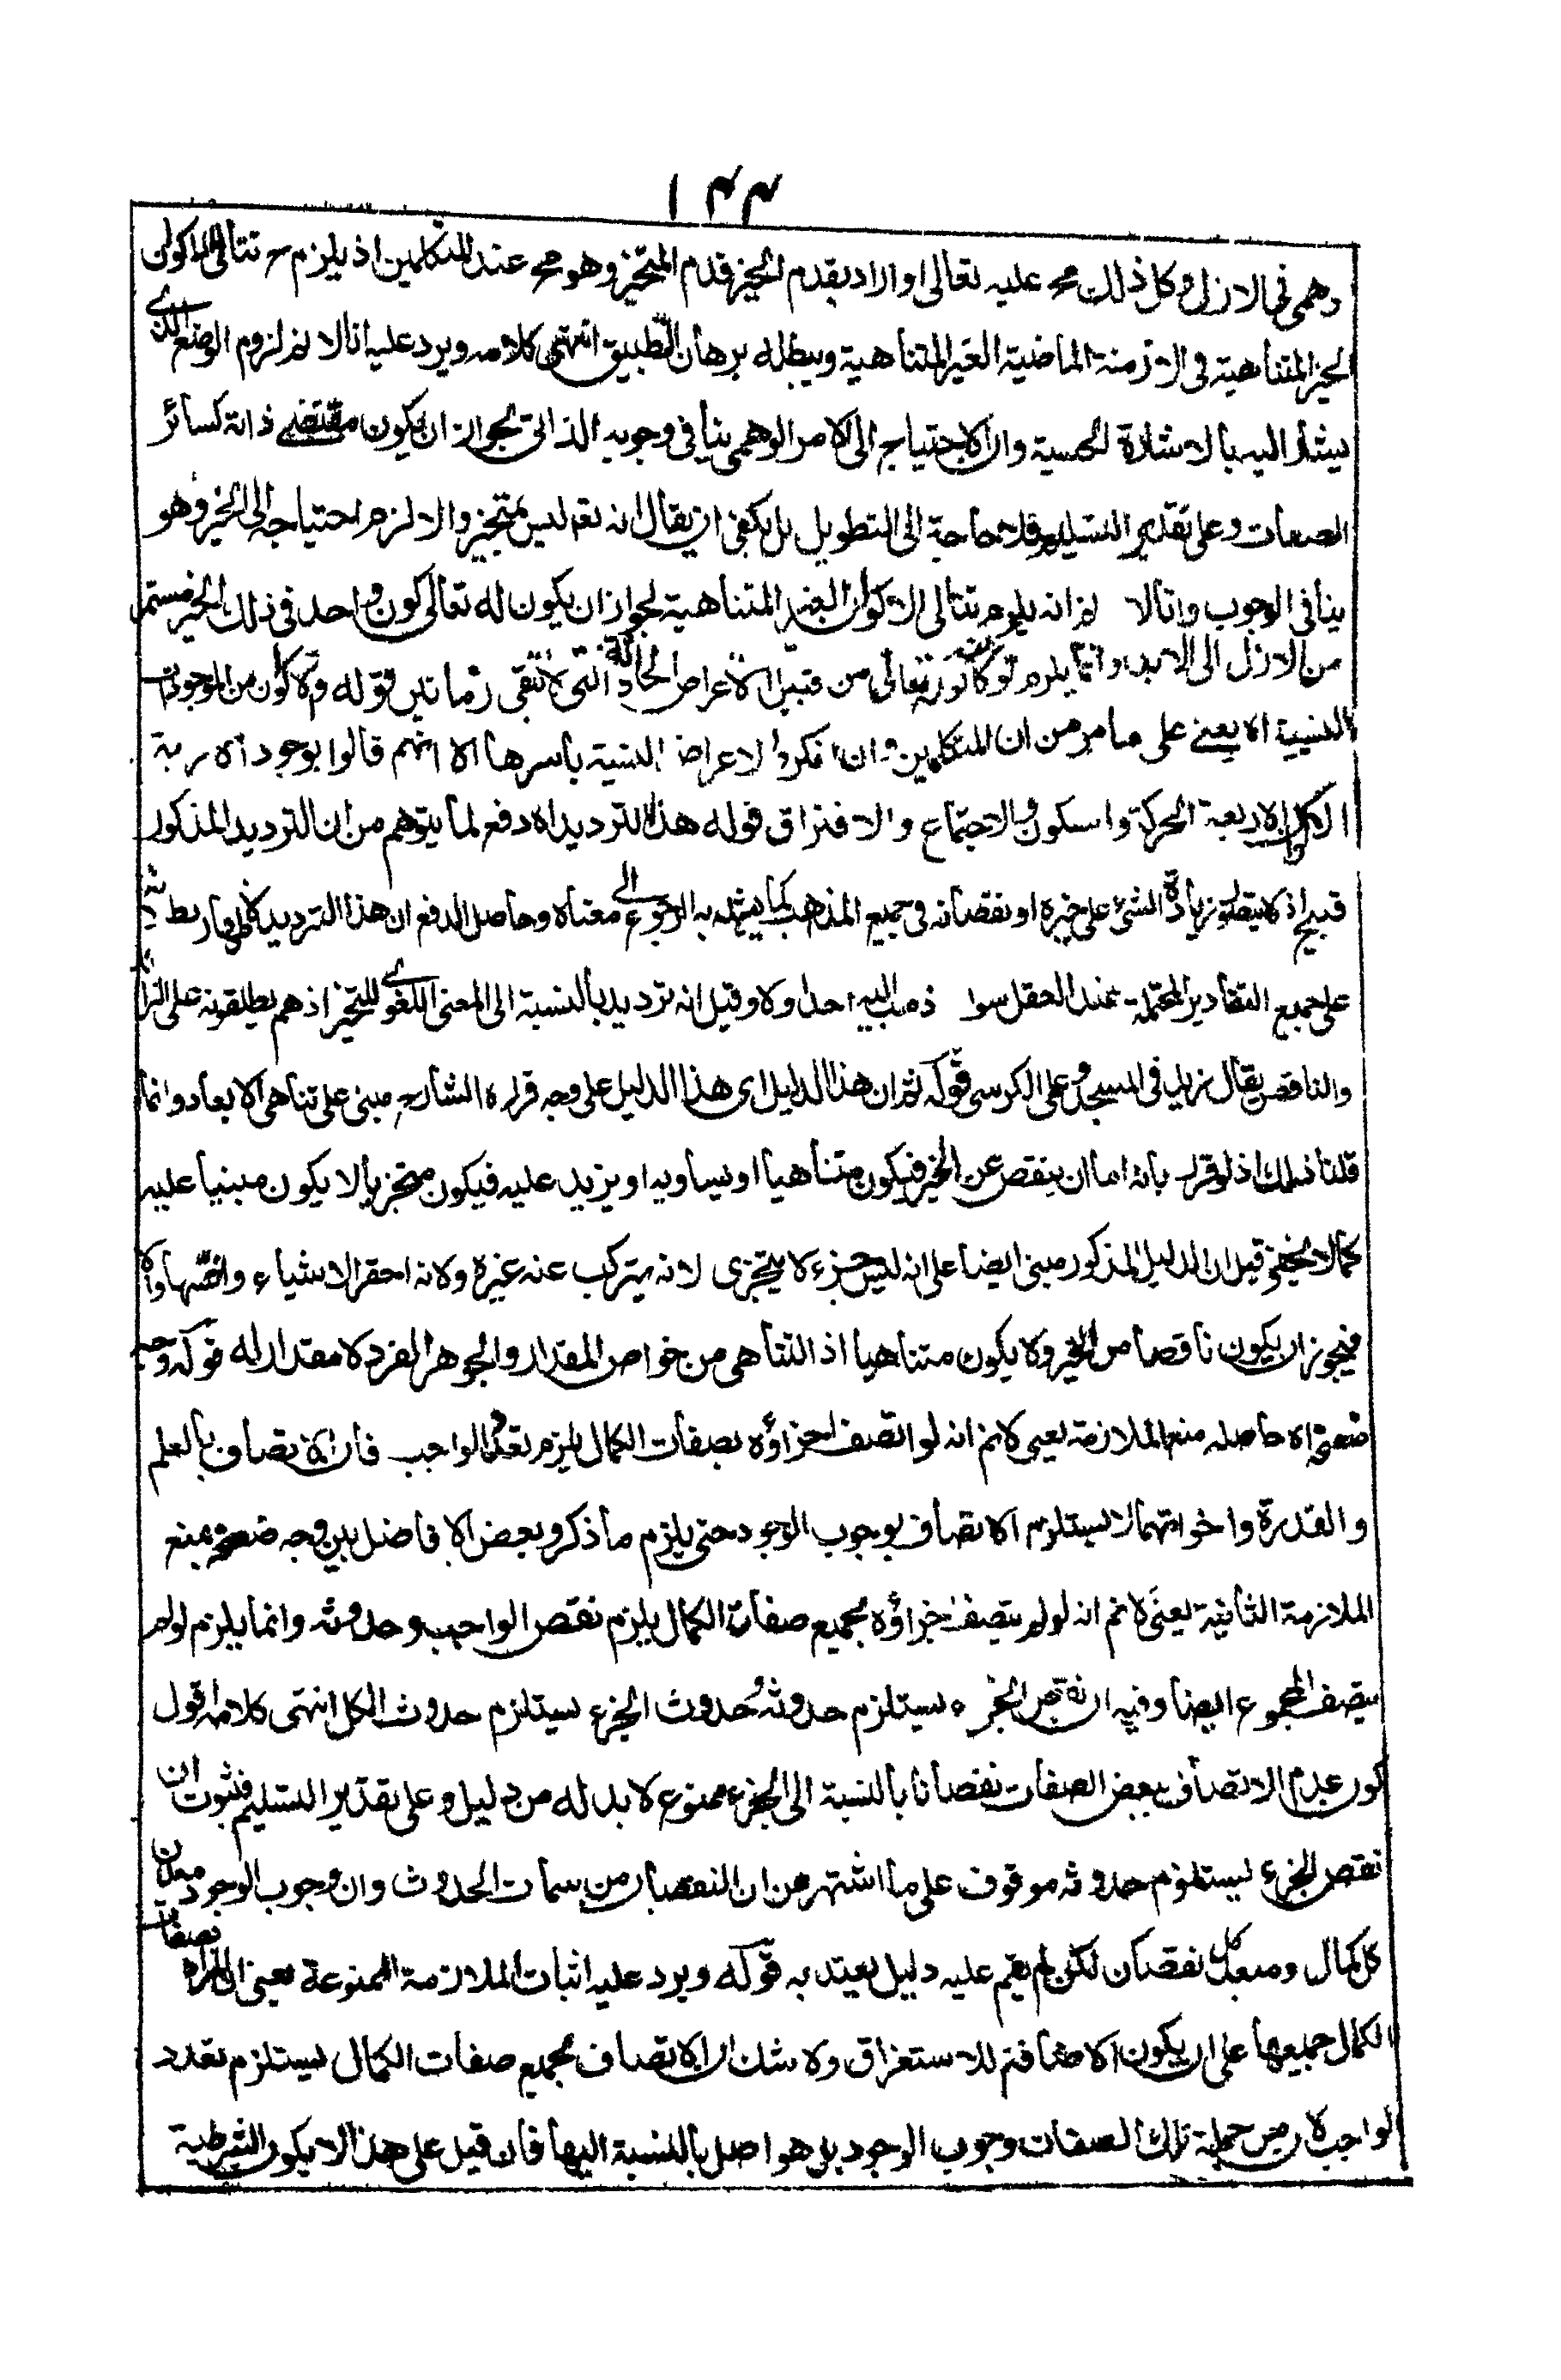 ١٣٣
وهمي في الازل وكل ذلك مح عليه تعالى او الاد بقدم الحيز قدم المتحيز وهو مح عند المتكلمين اذ يلزم ح تتالي الاكوان
الغير المتناهية في الازمنة الماضية الغير المتناهية ويبطله برهان التطبيق انتهى كلامه ويرد عليه انا لا نم لزوم الوضع الذي
يشار اليه بالاشارة الحسية وان الاحتياج الى الامر الوهمي ينافي وجوبه الذاتي لجواز ان يكون مقتضى ذاته كسائر
الصفات وعلى تقدير التسليم فلا حاجة الى التطويل بل يكفي ان يقال انه تعه ليس بمتحيز والا لزم احتياجه الى الحيز وهو
ينافي الوجوب وانا لا نم انه يلزم تتالي الاكوان الغير المتناهية لجواز ان يكون له تعالى كون واحد في ذلك الحيز مستمر
من الازل الى الابد وانما يلزم لو كان كونه تعالى من قبيل الاعراض الحادثة التي لا تبقى زمانين قوله والاكوان من الموجودات
النسبية اه يعني على ما مر من ان المتكلمين وان انكروا الاعراض النسبية باسرها الا انهم قالوا بوجود الاربعة
الاكوان الاربعة الحركة والسكون والاجتماع والافتراق قوله هذا الترديد اه دفع لما يتوهم من ان الترديد المذكور
قبيح اذ لا يتصور زيادة الشيء على حيزه او نقصانه في جميع المذاهب كما يشهد به الرجوع الى معناه وحاصل الدفع ان هذا الترديد
على جميع التقادير المحتملة عند العقل سواء ذهب اليه احد اولا وقيل انه ترديد بالنسبة الى المعنى اللغوي للتحيز اذ هم يطلقونه على الزائد
والناقص يقال زيد في المسجد وعلى الكرسي قوله ثم ان هذا الدليل اي هذا الدليل على وجه قرره الشارح مبني على تناهي الابعاد وانما
قلنا ذلك اذ لو قرر بانه اما ان ينقص عن الحيز فيكون متناهيا او يساويه او يزيد عليه فيكون متجزيا لا يكون مبنيا عليه
كما لا يخفى قيل ان الدليل المذكور مبني ايضا على انه ليس جزء لا يتجزى لانه يتركب عنه غيره ولانه احقر الاشياء واخسها والا
فيجوز ان يكون ناقصا من الحيز ولا يكون متناهيا اذ التناهي من خواص المقدار والجوهر الفرد لا مقدار له قوله وجه
ضعفه اه حاصله منع الملازمة يعني لا نم انه لو اتصف اجزاؤه بصفات الكمال يلزم تعدد الواجب فان الاتصاف بالعلم
والقدرة واخواتهما لا يستلزم الاتصاف بوجوب الوجود حتى يلزم ما ذكر وبعض الافاضل بين وجه ضعفه بمنع
الملازمة الثانية يعني لا نم انه لو لم يتصف اجزاؤه بجميع صفات الكمال يلزم نقص الواجب وحدوثه وانما يلزم لو لم
يتصف المجموع ايضا وفيه ان نقص الجزء يستلزم حدوثه وحدوث الجزء يستلزم حدوث الكل انتهى كلامه اقول
كون عدم الاتصاف ببعض الصفات نقصانا بالنسبة الى الجزء ممنوع لا بد له من دليل وعلى تقدير التسليم فثبوت ان
نقص الجزء يستلزم حدوثه موقوف على ما اشتهر من ان النقصان من سمات الحدوث وان وجوب الوجود معدن
كل كمال ومبعد كل نقصان لكن لم يقم عليه دليل يعتد به قوله ويرد عليه اثبات الملازمة الممنوعة يعني ان المراد بصفات
الكمال جميعها على ان يكون الاضافة للاستغراق ولا شك ان الاتصاف بجميع صفات الكمال يستلزم تعدد
الواجب لان من جملة تلك الصفات وجوب الوجود بل هو اصل بالنسبة اليها فان قيل على هذا لا يكون الشرطية